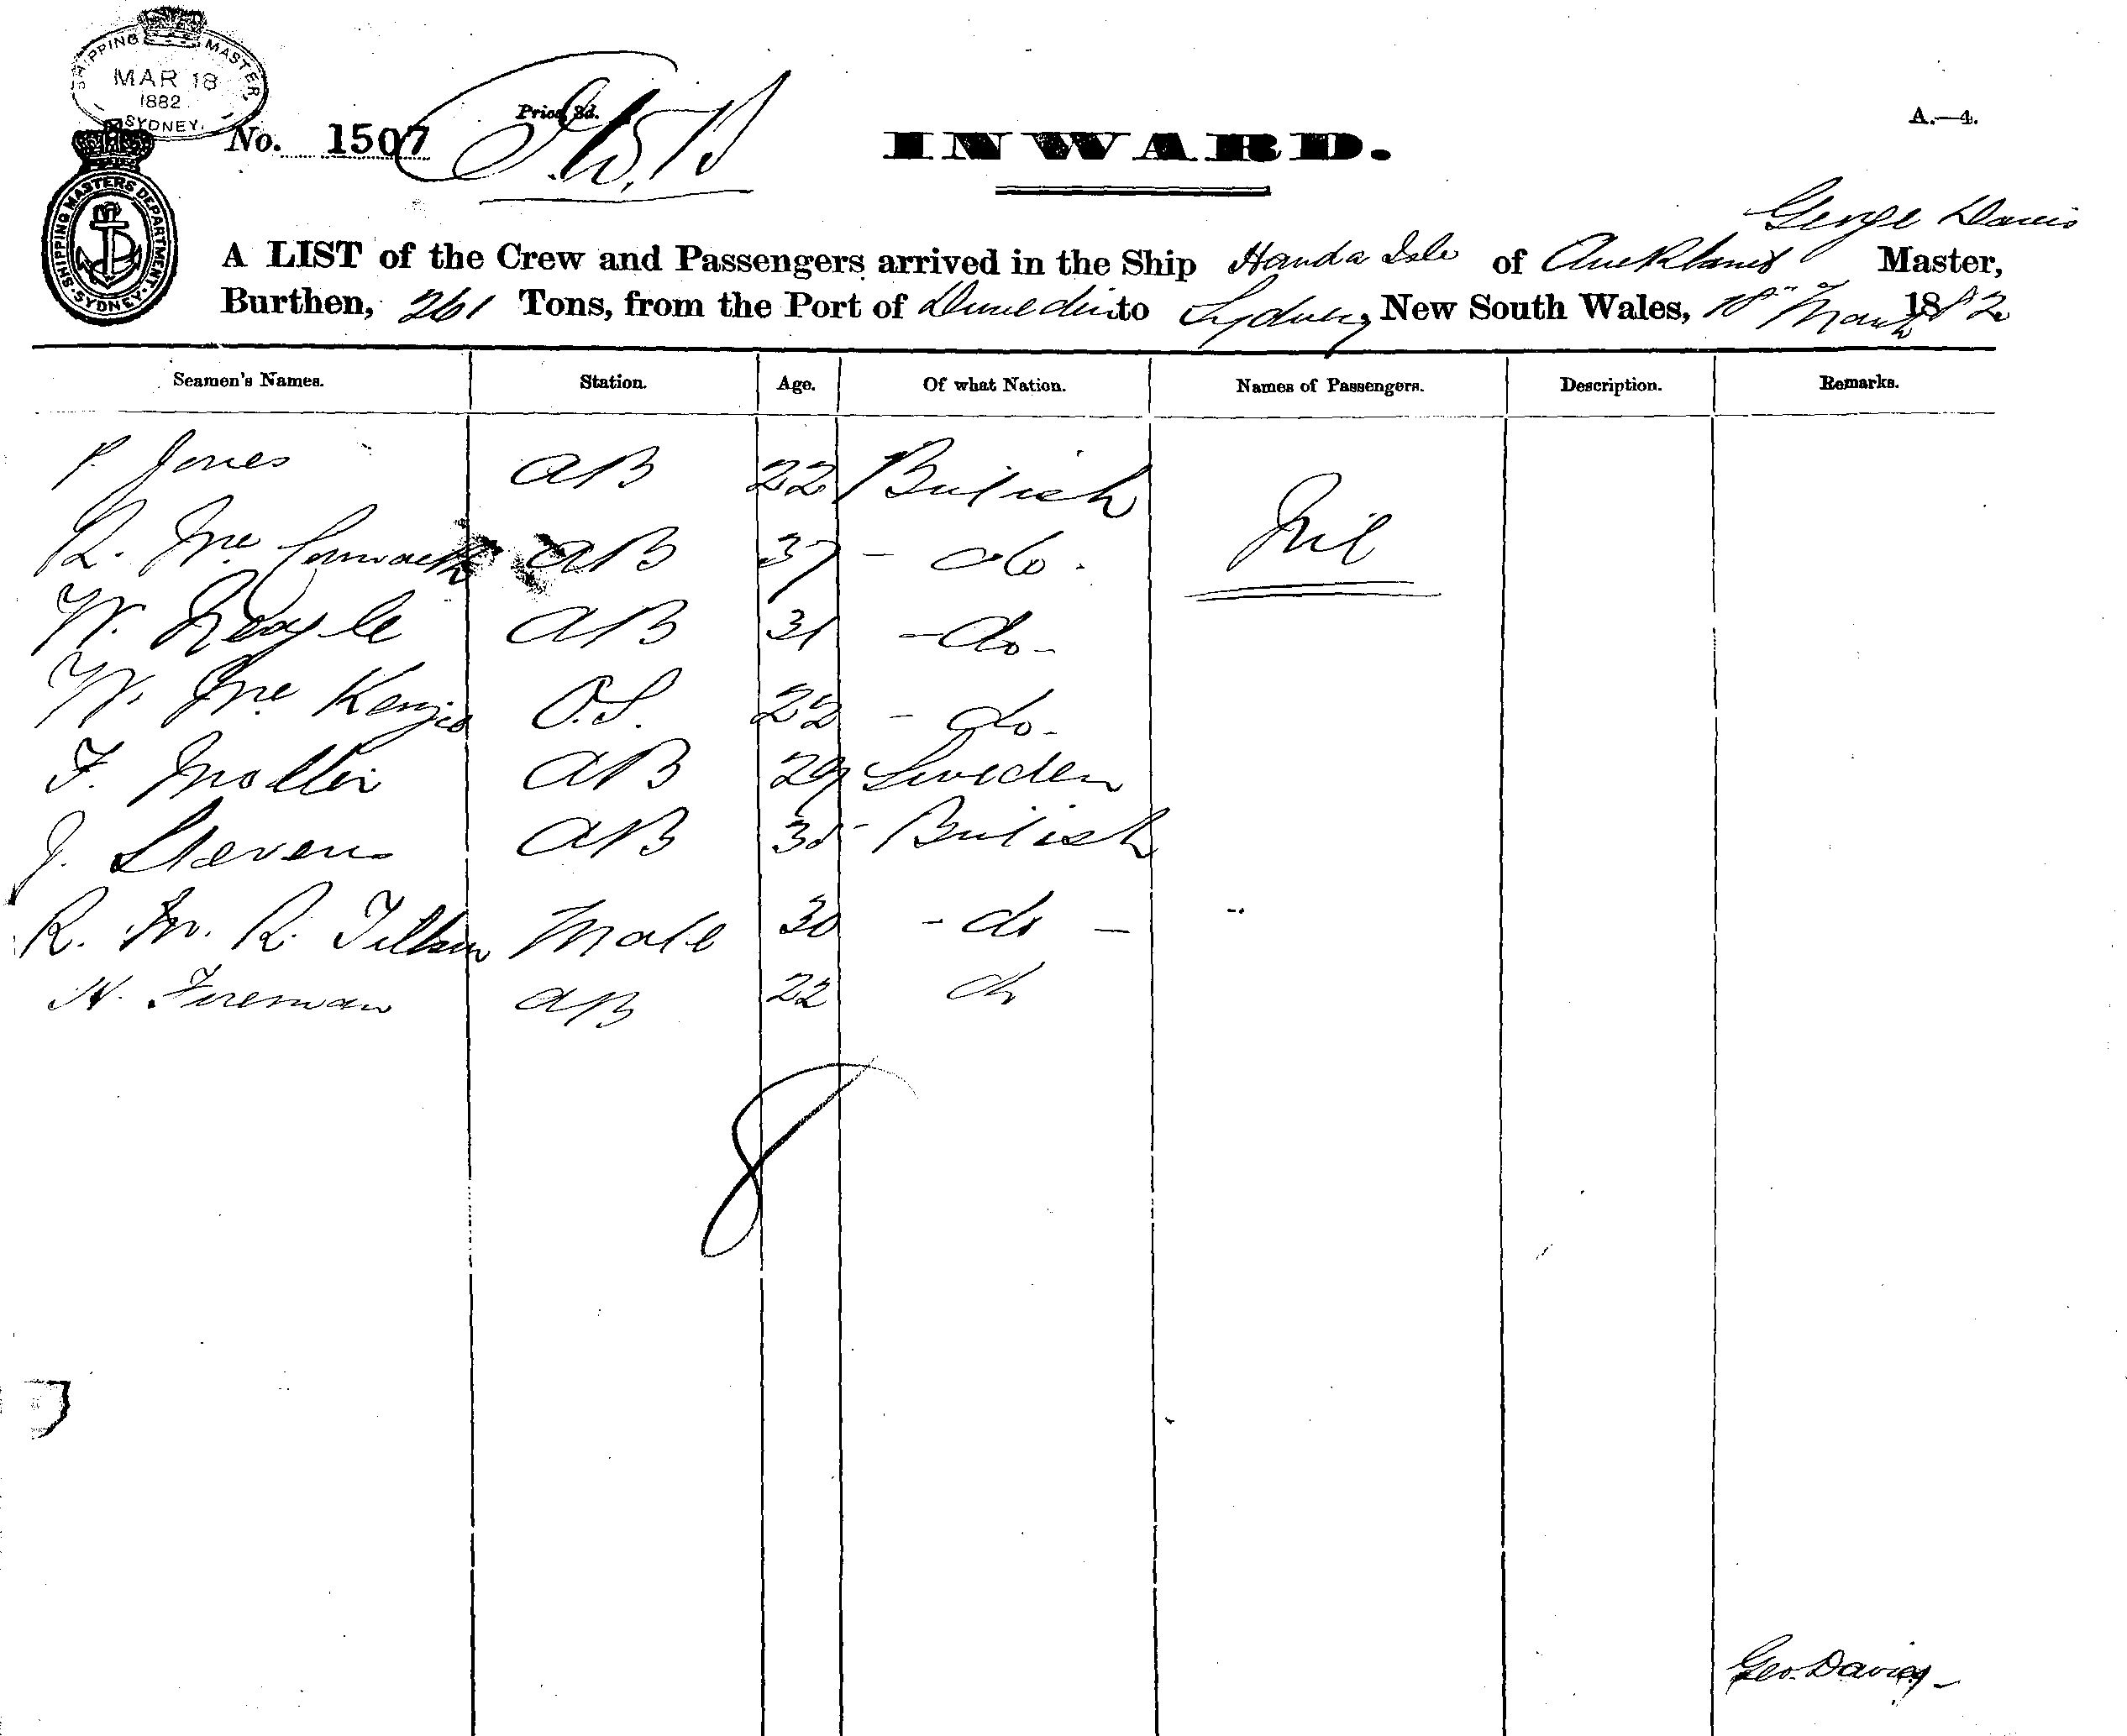 SHIPPING MASTER
MAR 18
1882
SYDNEY.
No. 1507
Price, 3d.
INWARD.
A.—4.
SHIPPING MASTERS DEPARTMENT SYDNEY
George Davis
A LIST of the Crew and Passengers arrived in the Ship Handa Isle of Auckland Master,
Burthen, 261 Tons, from the Port of Dunedin to Sydney, New South Wales, 18th March 1882
Seamen's Names. Station. Age. Of what Nation. Names of Passengers. Description. Remarks.
P. Jones AB 22 British
Nil
R. Mc AB 37 - do -
W. AB 31 - do -
W. McKenzie O.S. 22 - do -
F. Moller AB 29 Sweden
J. Stevens AB 35 British
R. R. Mate 30 - do -
H. Fireman AB 22 do
8
Geo. Davies